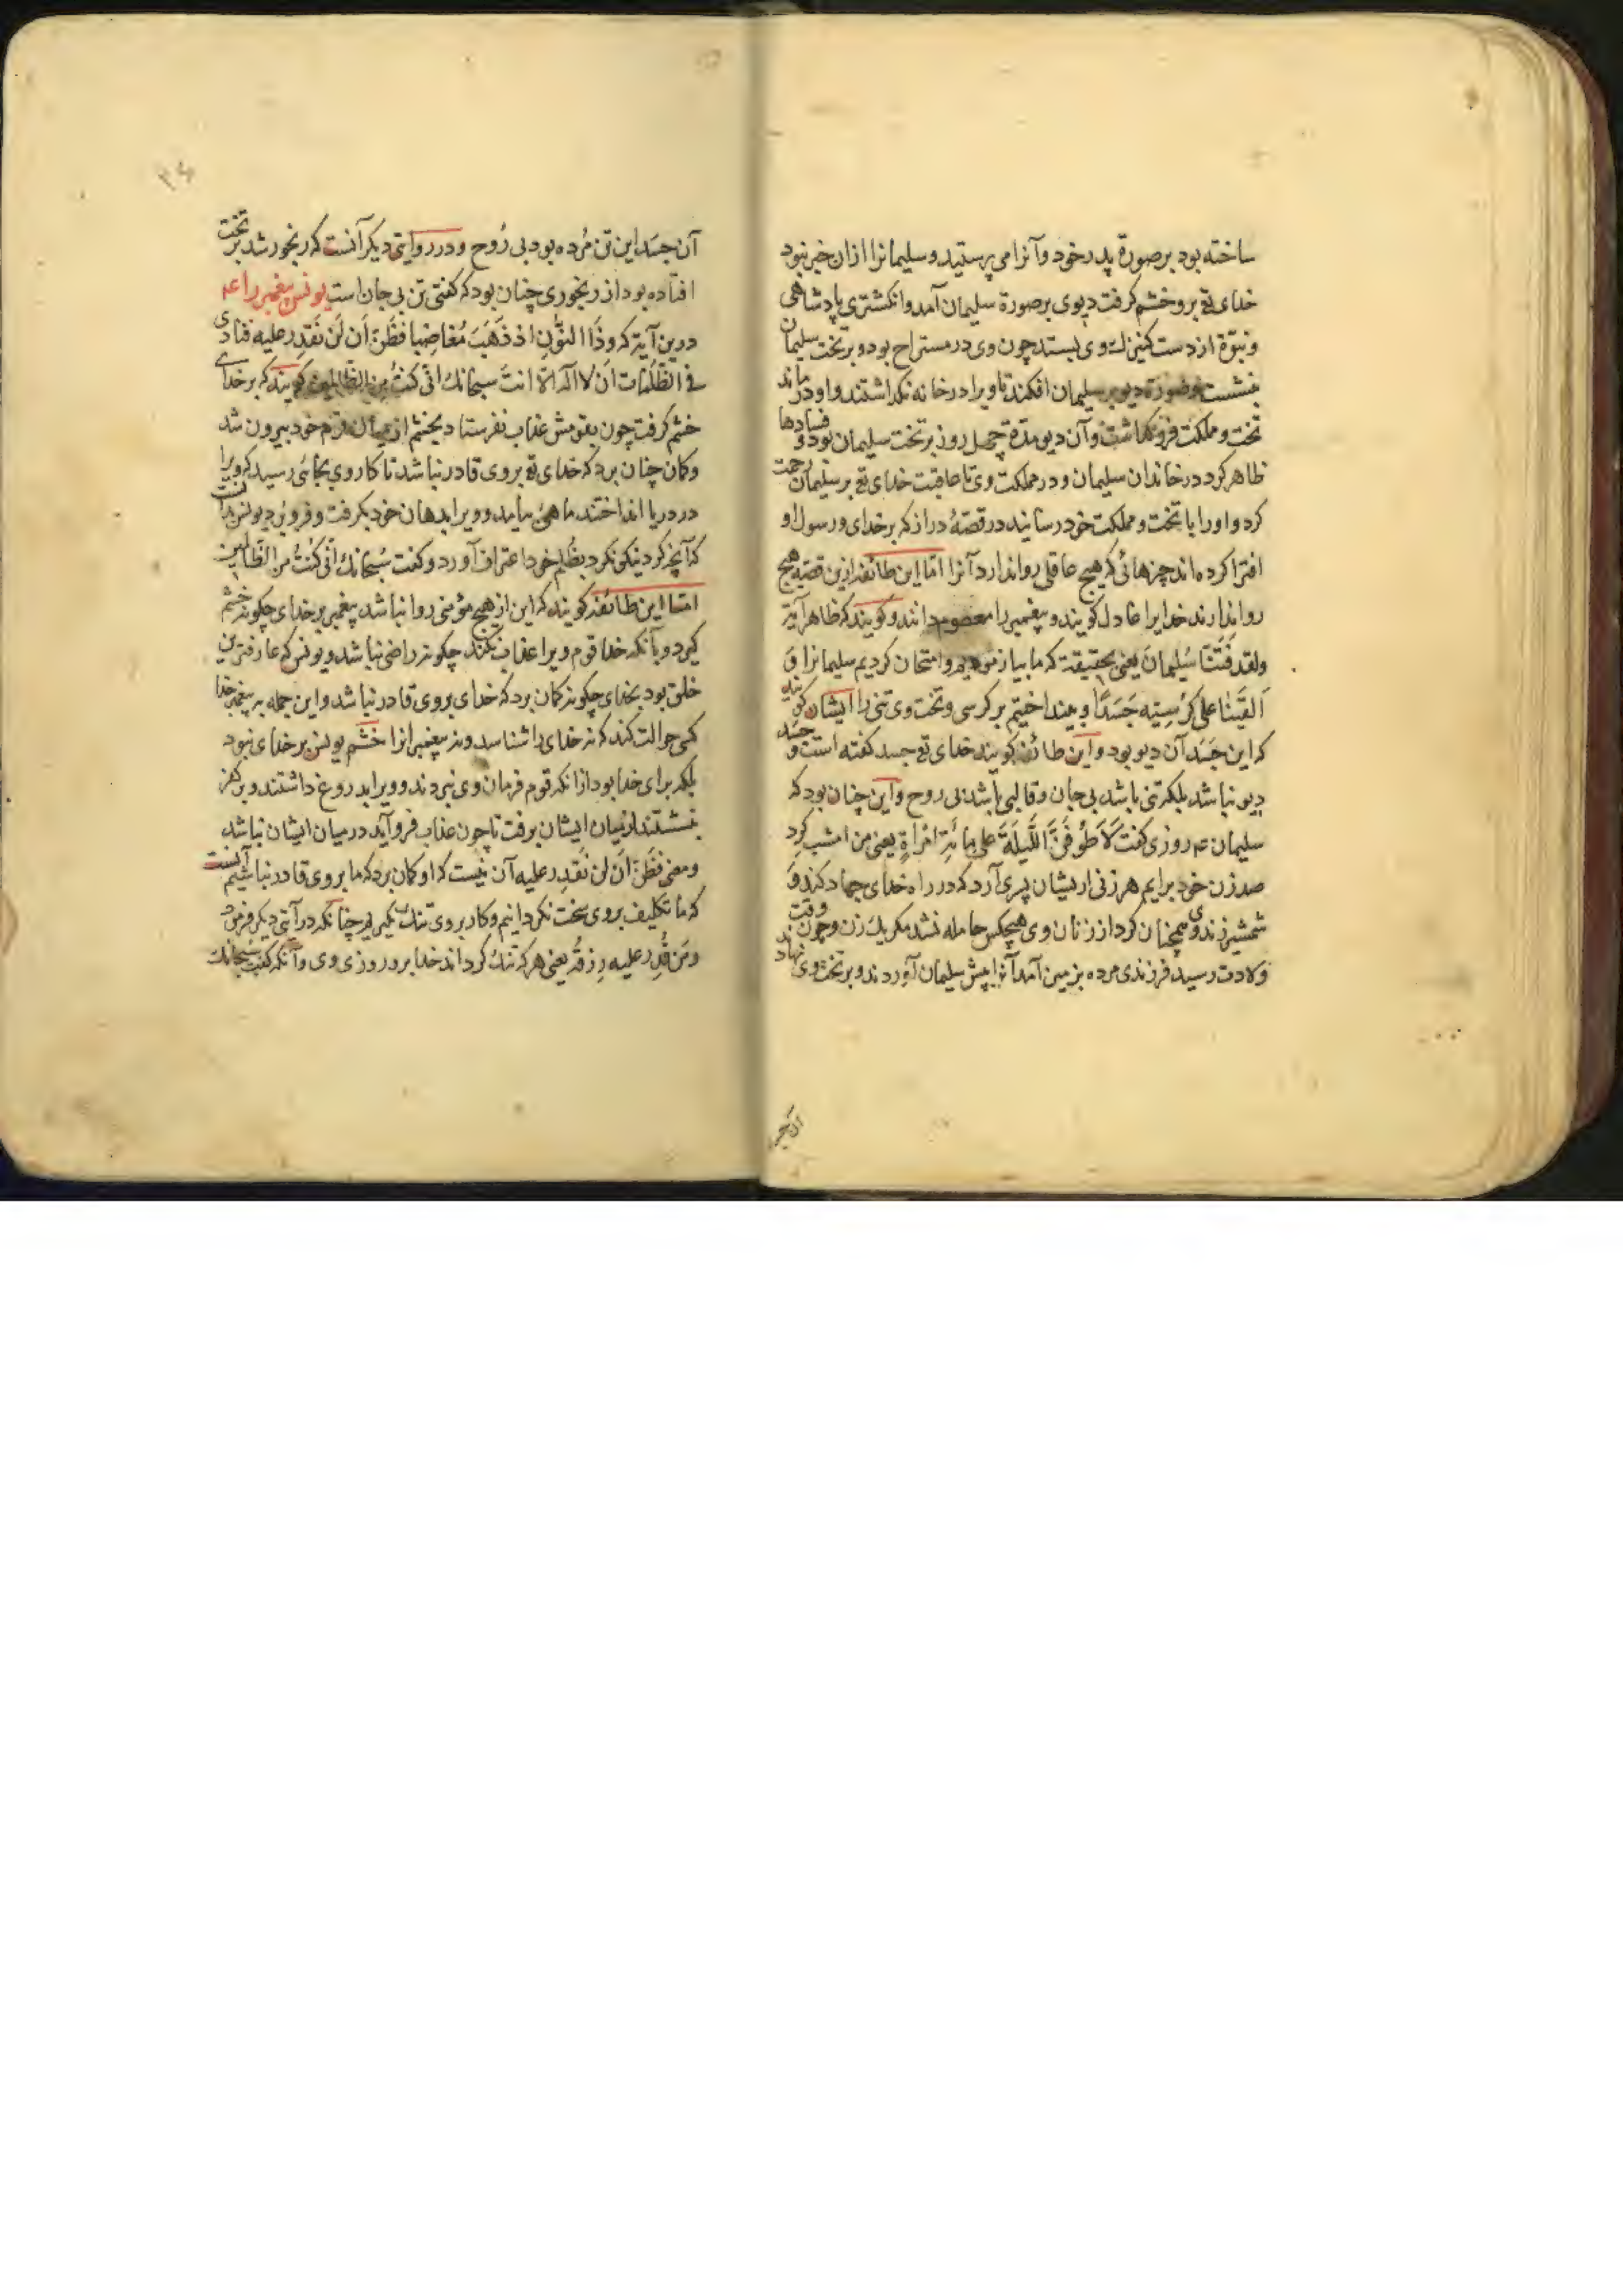 ساخته بود برصورة پدر خود و آنرا می پرستید و سلیمانرا ازان خبر نبود
خدای تع برو خشم کرفت دیوی برصورة سلیمان آمد و انکشتری پادشاهی
و نبوّة از دست کنیزك وی بستد چون وی در مستراح بود و بر تخت سلیمان
بنشست و صورة دیو بر سلیمان افکند تا ویرا در خانه نکذاشتند و او درماند
تخت و مملکت فرو کذاشت و آن دیو مدّة چهل روز بر تخت سلیمان بود و فسادها
ظاهر کرد در خاندان سلیمان و در مملکت وی تا عاقبت خدای تع بر سلیمان رحمت
کرد و اورا با تخت و مملکت خود رسانید در قصّهٔ دراز که بر خدای و رسول او
افترا کرده اند چزهائی که هیچ عاقلی روا ندارد آنرا امّا این طائفه ازین قصّه هیچ
روا ندارند خدایرا عادل کویند و پیغمبررا معصوم دانند و کویند که ظاهر آیة
ولقد فَتَنّا سُلیمانَ یعنی بحقیقة که ما بیازمودیم و امتحان کردیم سلیمانرا وَ
اَلقَینا علی کُرسِیّه جَسَدًا و بینداختیم بر کرسی و تخت وی تنی را ایشان کویند
که این جَسَد آن دیو بود و این طائفه کویند خدای تع جسد کفته است و جسَد
دیو نباشد بلکه تنی باشد بی جان و قالبی باشد بی روح و این چنان بود که
سلیمان عم روزی کفت لَاَطُوفَنَّ اللَّیلَةَ علی مائة امْراةٍ یعنی من امشب کرد
صد زن خود برایم هر زنی ازیشان پسری آرد که در راه خدای جهاد کند و
شمشیر زند و همچنان کرد از زنان وی هیچکس حامله نشد مکر یك زن و چون وقت
ولادت رسید فرزندی مرده بزمین آمد آنرا پیش سلیمان آوردند و بر تخت وی نهادند
آن جسد
آن جسَد این تن مُرده بود بی رُوح و در روایتی دیکر آنست که رنجور شد بر تخت
افتاده بود از رنجوری چنان بود که کفتی تن بی جان است یونس پیغمبررا عم
درین آیة که وذَا النُّونِ اذ ذَهَبَ مُغاضِبا فظَنَّ اَن لَن نَقدِر علیه فنادی
فی الظُلُمات اَن لا اله الّا انتَ سبحانك انّی کنتُ من الظالمین کویند که بر خدای
خشم کرفت چون بقومش عذاب نفرستاد بخشم از میان قوم خود بیرون شد
و کمان چنان برد که خدای تع بروی قادر نباشد تا کار وی بجائی رسید که ویرا
در دریا انداختند ماهیٔ بیامد و ویرا بدهان خود بکرفت و فرو برد یونس بدانست
که آنچه کرد نیکو نکرد بظُلم خود اعتراف آورد و کفت سُبحانك انّی کُنتُ من الظالمین
امّا این طائفه کویند که این از هیچ مؤمنی روا نباشد پیغمبر بر خدای چکونه خشم
کیرد و بآنکه خدا قوم ویرا عذاب نکند چکونه راضی نباشد و یونس که عارفترین
خلق بود بخدای چکونه کمان برد که خدای بروی قادر نباشد و این جمله به پیغمبر خدا
کسی حوالت کند که نه خدای را شناسد و نه پیغمبرانرا خشم یونس بر خدای نبود
بلکه برای خدا بود ازانکه قوم فرمان وی نبردند و ویرا بدروغ داشتند و بر کفر
بنشستند از میان ایشان برفت تا چون عذاب فرو آید در میان ایشان نباشد
ومعنی فظَنَّ اَن لن نَقدِر علیه آن نیست که او کمان برد که ما بروی قادر نباشیم آنست
که ما تکلیف بروی سخت نکردانیم و کار بروی تنك نکیریم چنانکه در آیتی دیکر فرمود
ومَن قُدِر علیه رِزقُه یعنی هر که تنك کرداند خدا برو روزی وی و آنکه کفت سُبحانك